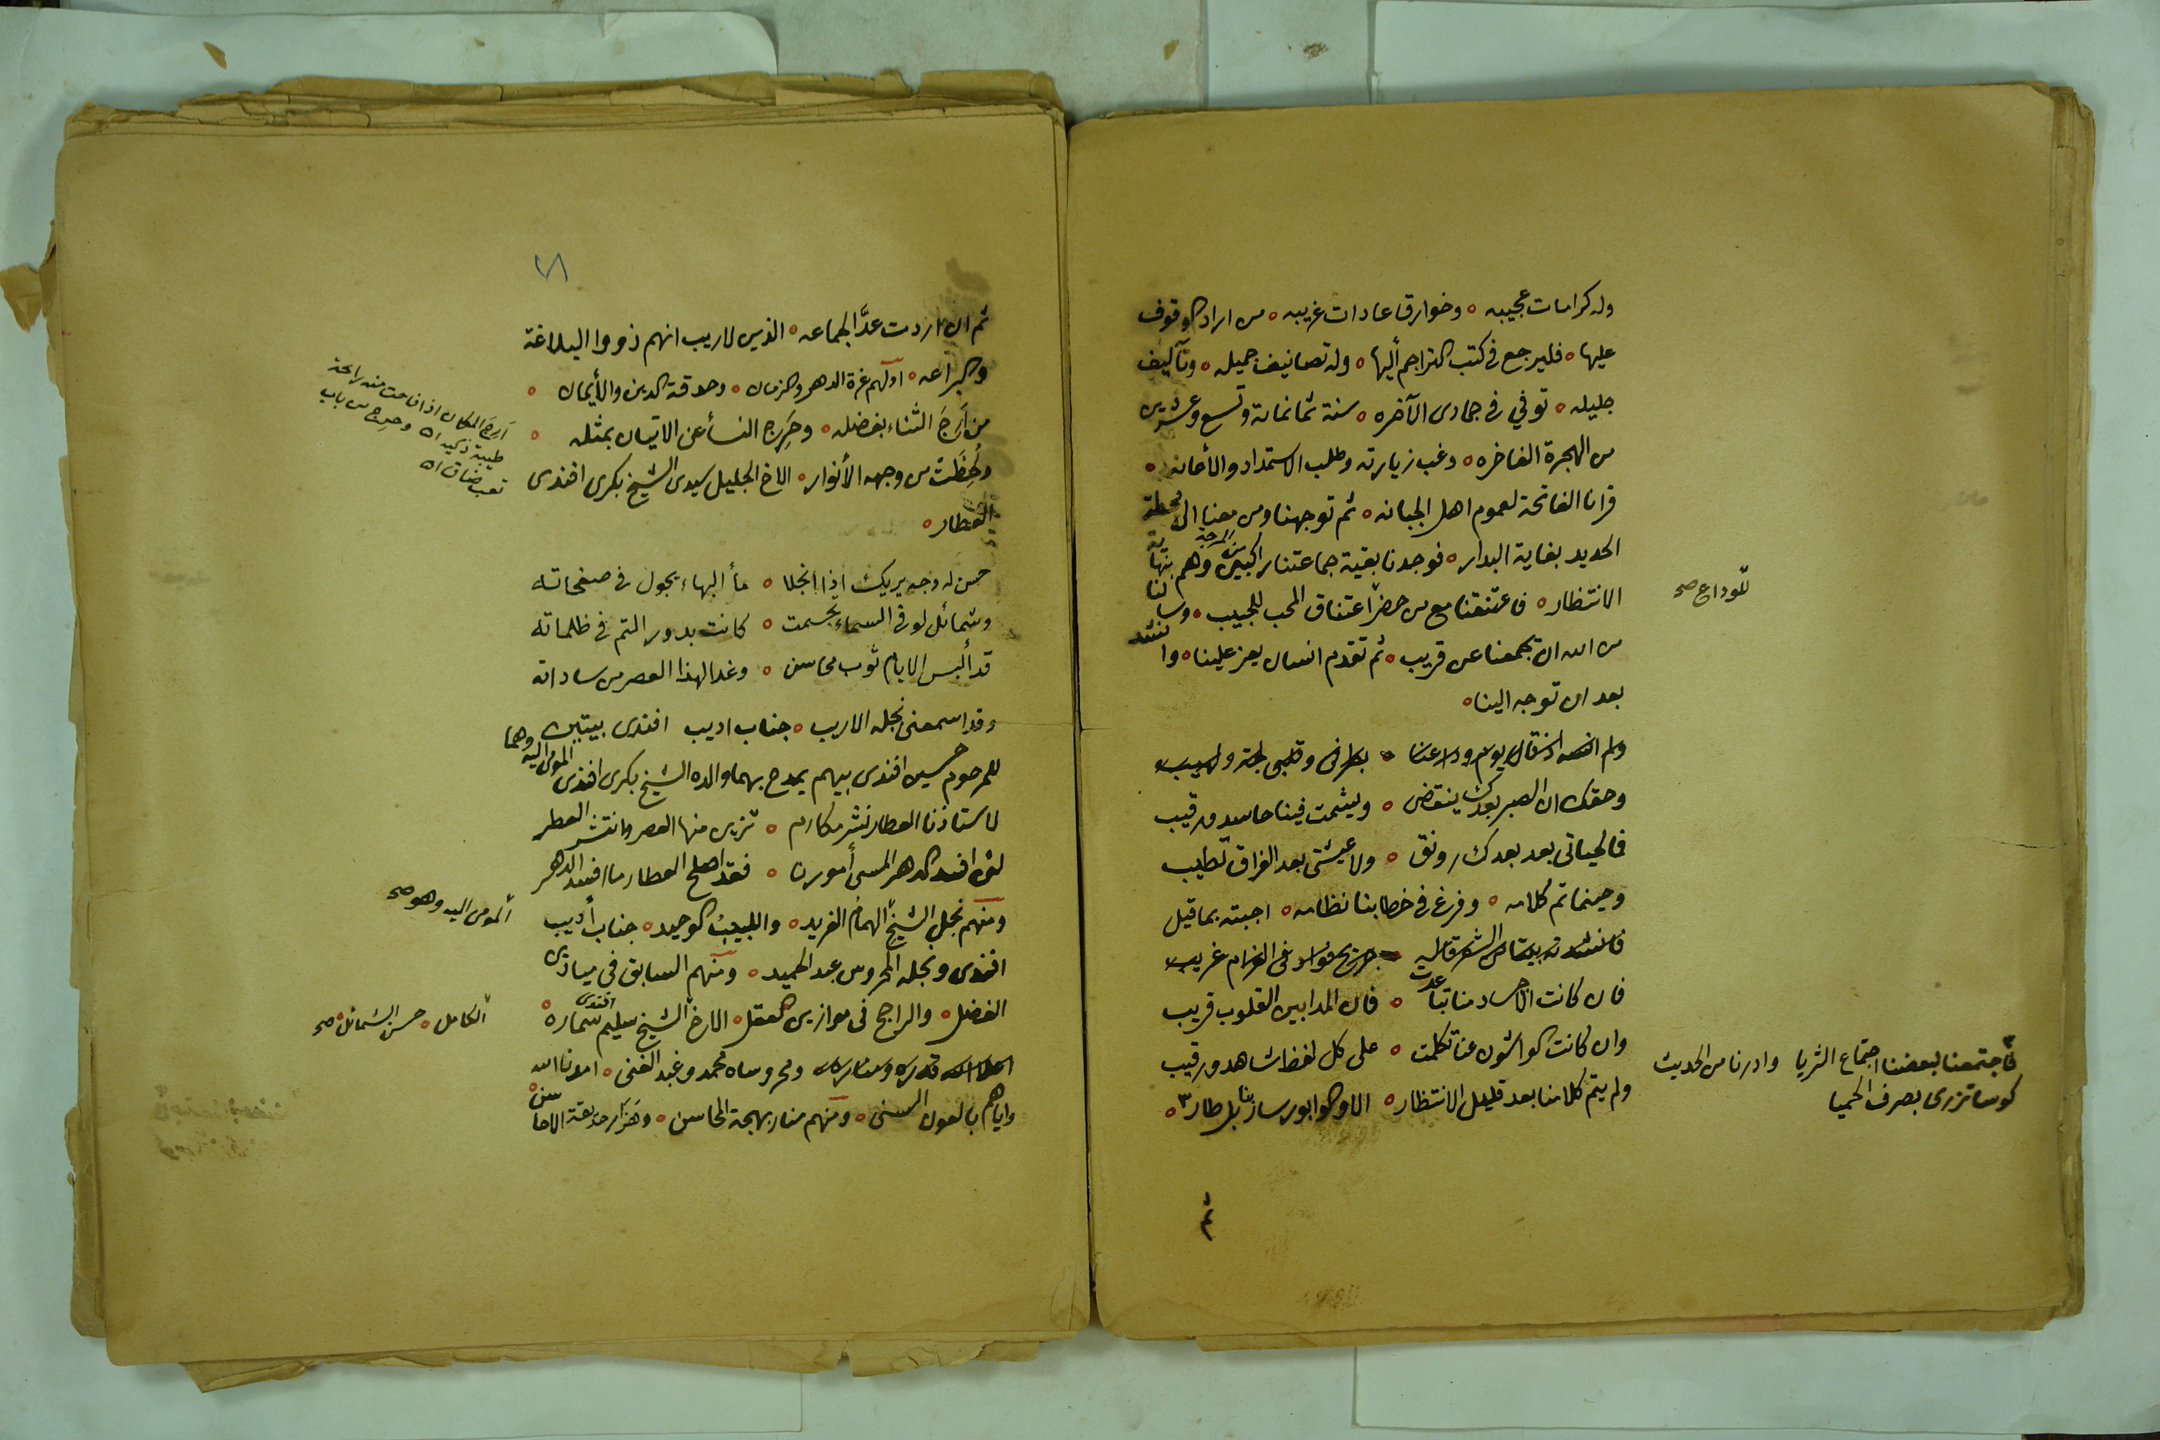 وله كرامات عجيبه ٥ وخوارق عادات غريبه ٥ من اراد الوقوف
عليها ٥ فليرجع في كتب التراجم أليها ٥ وله تصانيف جميله ٥ وتآليف
جليله ٥ توفي في جمادى الآخره ٥ سنة ثمانمائة وتسع وعشرين
من الهجرة الفاخره ٥ وغب زيارته وطلب الاستمداد والأعانه ٥
قرانا الفاتحة لعموم اهل الجبانه ٥ ثم توجهنا ومن معنا الى محطة
الحديد بغاية البدار ٥ فوجدنا بقية جماعتنا راكبين وهم بنهاية
الانتظار ٥ فاعتنقنا مع من حضر اعتناق المحب للحبيب ٥ وسالنا
للوداع صح
من الله ان يجمعنا عن قريب ٥ ثم تقدم انسان يعز علينا ٥ وانشد
بعد ان توجه الينا ٥
ولم انصه اذ قال يوم وداعنا ٥ بطرفي وقلبي
وحقك ان الصبر بعدك ينقضى ٥ ويشمت فينا حاسد ورقيب
فما لحياتى بعد بعدك رونق ٥ ولا عيشتى بعد الفراق تطيب
وحينما تم كلامه ٥ وفرغ في خطابنا نظامه ٥ اجبته بما قيل
فانشدته
فان كانت الاجساد منا تباعدت ٥ فان المدا بين القلوب قريب
وان كانت الواشون عنا تكلمت ٥ على كل لفظ شاهد ورقيب
ولم يتم كلامنا بعد قليل الانتظار ٥ الا والوابور سار بنا بل طار ٣ ٥
٣ فاجتمعنا ببعضنا اجتماع الثريا وادرنا من الحديث
كوسا تزرى بصرف الحميا
ثم
٧١
ثم ان اردت عدَّ الجماعه ٥ الذين لا ريب انهم ذووا البلاغة
والبراعه ٥ اولهم غرة الدهر والزمان ٥ وحدقة الدين والأيمان ٥
من أَرِجَ الثناء بفضله ٥ وحَرِجَ النسأ عن الاتيان بمثله ٥
أرِجَ المكان اذا فاحت منه رائحة
طيبة ذكيه اه وحرج من باب
تعب ضاق اه
ولُحِظَتْ من وجهه الأنوار ٥ الاخ الجليل سيدى الشيخ بكرى افندى
العطار ٥
حسن له وجه يريك اذا انجلا ٥ مأ البهاء يجول في صفحاته
وشمائل لو في السماء تجسمت ٥ كانت بدور التم في ظلماته
قد ألبس الايام ثوب محاسن ٥ وغدا لهذا العصر من ساداته
وقد اسمعنى نجله الاريب ٥ جناب اديب افندى بيتين
للمرحوم حسين افندى بيهم يمدح بهما والده الشيخ بكرى افندى المومى اليه وهما
لاستاذنا العطار نشر مكارم ٥ تزين منها العصر وانتشر العطر
لئن افسد الدهر المسى أمورنا ٥ فقد اصلح العطار ما افسد الدهر
ومنهم نجل الشيخ الهمام الفريد ٥ واللبيب الوحيد ٥ جناب أديب
المومى اليه وهو صح
افندى ونجله المحروس عبد الحميد ٥ ومنهم السابق في ميادين
الفضل ٥ والراجح في موازين العقل ٥ الاخ الشيخ سليم افندى سماره ٥
الكامل ٥ حسن الشمائل ٥ صح
اعلا الله قدره ومناره ومحروساه محمد وعبد الغنى ٥ امدنا الله
واياهم بالعون السنى ٥ ومنهم منار بهجة المحاسن ٥ وهزار حديقة الاحاسن ٥